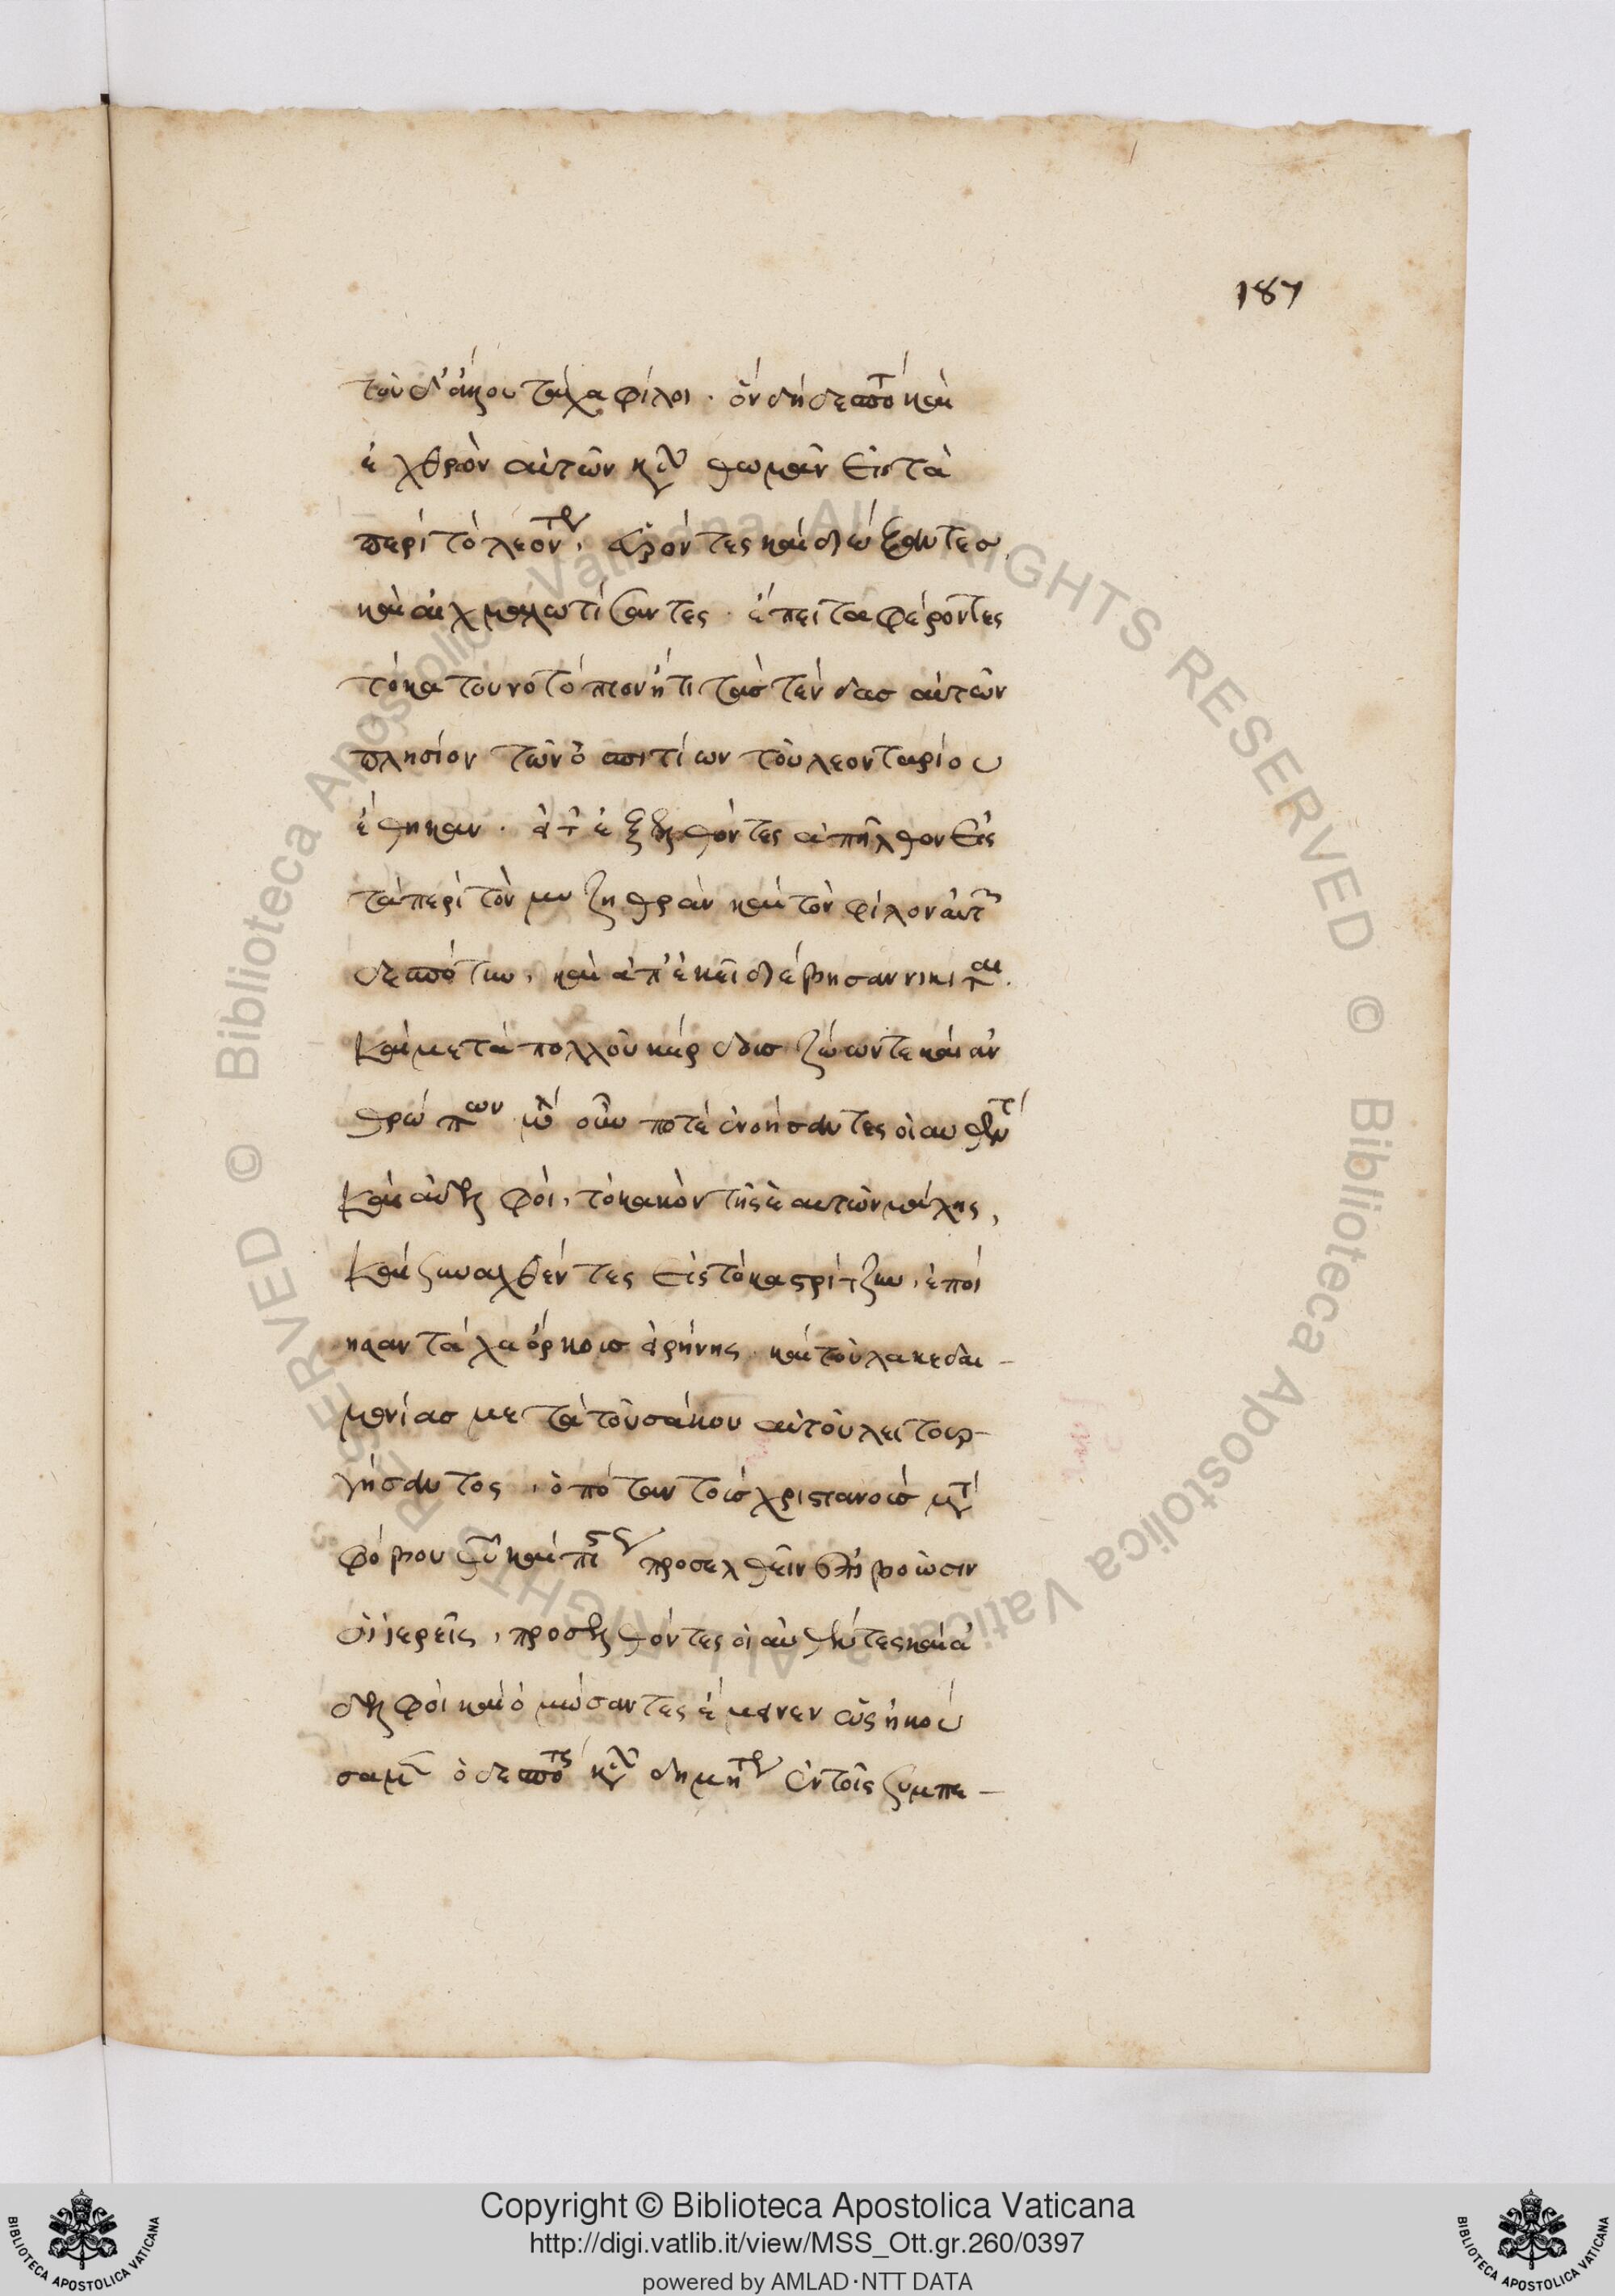 187
τοῦ δ' ἄκρου τάχα φίλοι. ὃν δὴ δεσπό καὶ
ἐχθρὸν αὐτῶν κὺρ θωμᾶν εἰς τὰ
περὶ τὸ λεοντ, εὑρόντες καὶ διώξαντες
καὶ αἰχμαλωτίσαντες. ἔπειτα φέροντες
τὸ κατουνοτόπιον ἤτι τὰς τένδας αὐτῶν
πλησίον τῶν ὁσπιτίων τοῦ λεονταρίου
ἔθηκαν. εἶτ' ἐξελθόντες ἀπῆλθον εἰς
τὰ περὶ τὸν μυζηθρὰν καὶ τὸν φίλον αὐτ
δεσπότην, καὶ ἀπ' ἐκεῖ διέβησαν νικηταὶ.
καὶ μετὰ πολλοῦ κέρδους ζώων τε καὶ ἀν
θρώπων οὖν ποτὲ ἐνοήσαντες οἱ αὐθέντ
καὶ ἀδελφοὶ, τὸ κακὸν τῆς ἑαυτῶν μάχης,
καὶ συναχθέντες εἰς τὸ καστρίτζην, ἐποί
ησαν τάχα ὅρκους εἰρήνης. καὶ τοῦ λακεδαι-
μονίας μετὰ τοῦ σάκου αὐτοῦ λειτουρ-
γήσαντος, ὁπόταν τοῖς χριστιανοῖς μετ
φόβου θῦ καὶ πίστ προσελθεῖν βοῶσιν
οἱ ἱερεῖς, προσελθόντες οἱ αὐθένται καὶ ἀ
δελφοὶ καὶ ὀμώσαντες ἔμενεν ὡς ἠκού
σαμ ὁ δεσπό κὺρ δημήτρ ἐν τοῖς συμπε-
Copyright © Biblioteca Apostolica Vaticana
http://digi.vatlib.it/view/MSS_Ott.gr.260/0397
powered by AMLAD·NTT DATA